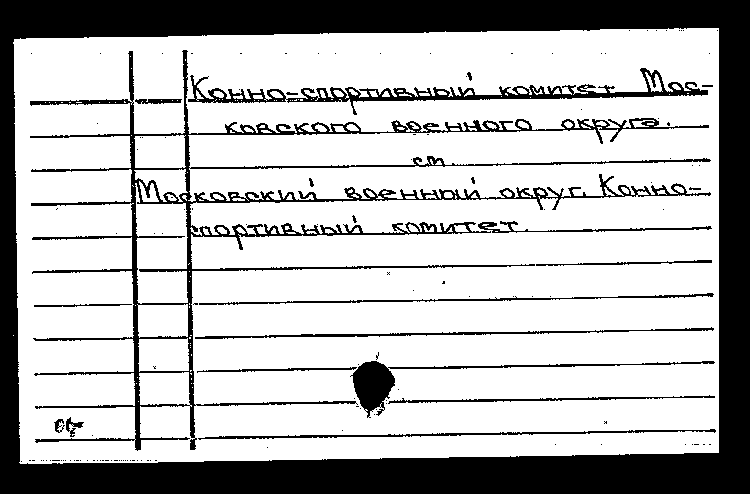 Конно-спортивный комитет Мос-
ковского военного округа.
см.
Московский военный округ. Конно-
спортивный комитет.